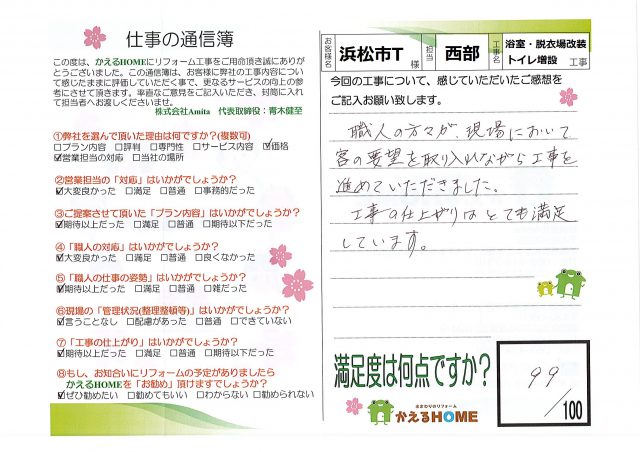 仕事の通信簿
この度は、かえるHOMEにリフォーム工事をご用命頂き誠にありが
とうございました。この通信簿は、お客様に弊社の工事内容につい
て感じたままに評価していただく事で、更なるサービスの向上の参
考にさせて頂きます。率直なご意見をご記入いただき、封筒に入れ
て担当者へお渡しくださいませ。
株式会社Amita 代表取締役：青木健至
①弊社を選んで頂いた理由は何ですか?(複数可)
□プラン内容 □評判 □専門性 □サービス内容 ☑価格
☑営業担当の対応 □当社の場所
②営業担当の「対応」はいかがでしょうか?
☑大変良かった □満足 □普通 □事務的だった
③ご提案させて頂いた「プラン内容」はいかがでしょうか?
☑期待以上だった □満足 □普通 □期待以下だった
④「職人の対応」はいかがでしょうか?
☑大変良かった □満足 □普通 □良くなかった
⑤「職人の仕事の姿勢」はいかがでしょうか?
☑期待以上だった □満足 □普通 □雑だった
⑥現場の「管理状況(整理整頓等)」はいかがでしょうか?
☑言うことなし □配慮があった □普通 □できていない
⑦「工事の仕上がり」はいかがでしょうか?
☑期待以上だった □満足 □普通 □期待以下だった
⑧もし、お知合いにリフォームの予定がありましたら
かえるHOMEを「お勧め」頂けますでしょうか?
☑ぜひ勧めたい □勧めてもいい □わからない □勧められない
お客様名 浜松市T 様 担当 西部 工事名 浴室・脱衣場改装 トイレ増設 工事
今回の工事について、感じていただいたご感想を
ご記入お願い致します。
職人の方々が、現場において
客の要望を取り入れながら工事を
進めていただきました。
工事の仕上がりはとても満足
しています。
満足度は何点ですか?
99/100
水まわりのリフォーム
かえるHOME